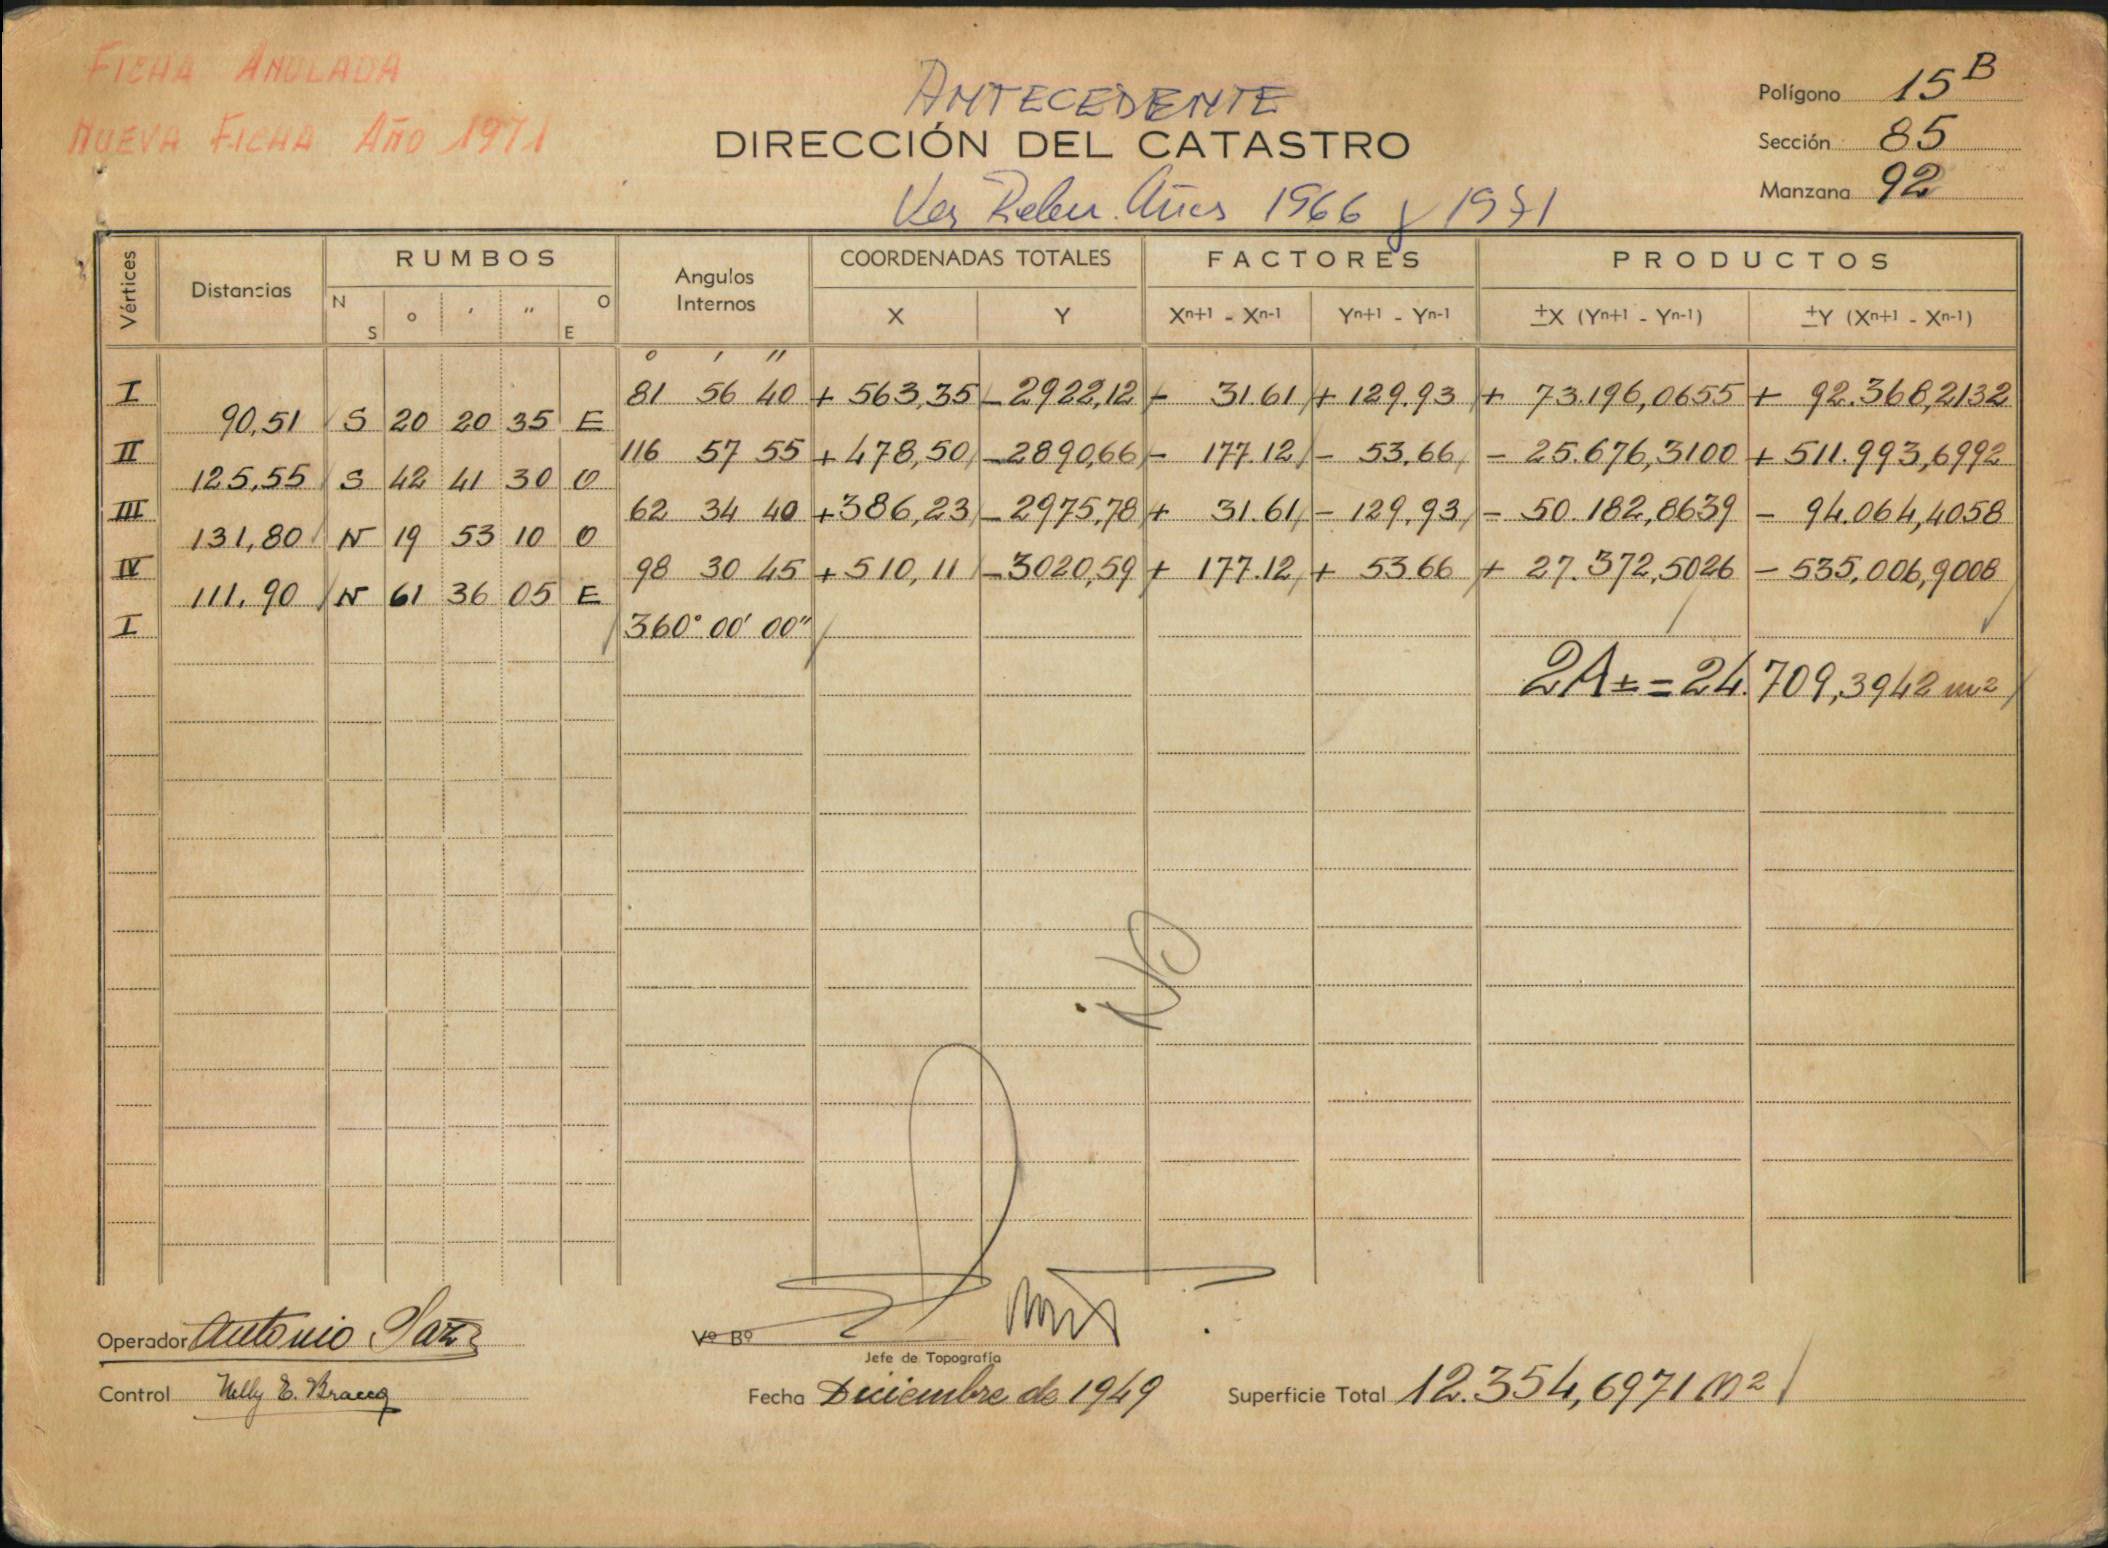 FICHA ANULADA
NUEVA FICHA AÑO 1971
ANTECEDENTE
DIRECCIÓN DEL CATASTRO
Ver Relev. Años 1966 y 1971
Polígono 15 B
Sección 85
Manzana 92
Vértices Distancias RUMBOS Angulos Internos COORDENADAS TOTALES FACTORES PRODUCTOS
N S o ' '' O E X Y Xn+1 - Xn-1 Yn+1 - Yn-1 ±X (Yn+1 - Yn-1) ±Y (Xn+1 - Xn-1)
o ' ''
I 81 56 40 + 563,35 - 2922,12 - 31.61 + 129.93 + 73.196,0655 + 92.368,2132
90,51 S 20 20 35 E
II 116 57 55 + 478,50 - 2890,66 - 177.12 - 53.66 - 25.676,3100 + 511.993,6992
125,55 S 42 41 30 O
III 62 34 40 + 386,23 - 2975,78 + 31.61 - 129,93 - 50.182,8639 - 94.064,4058
131,80 N 19 53 10 O
IV 98 30 45 + 510,11 - 3020,59 + 177.12 + 53.66 + 27.372,5026 - 535.006,9008
111.90 N 61 36 05 E
I 360° 00' 00"
2A± = 24.709,3942 m2
Operador Antonio
Vº Bº
Jefe de Topografía
Control Nelly E. Bracco
Fecha Diciembre de 1949
Superficie Total 12.354,6971 m2